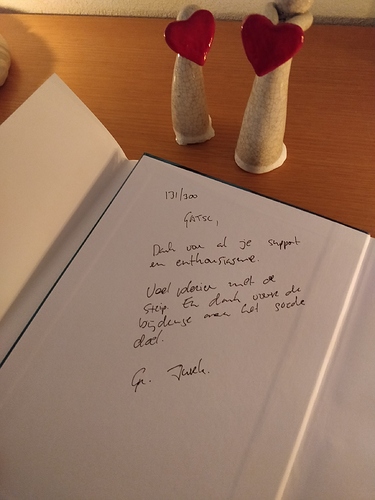 131/300
GATSC,
Dank voor al je support
en enthousiasme.
Veel plezier met de
strip. En dank voor de
bijdrage aan het goede
doel.
Gr. Jurk.